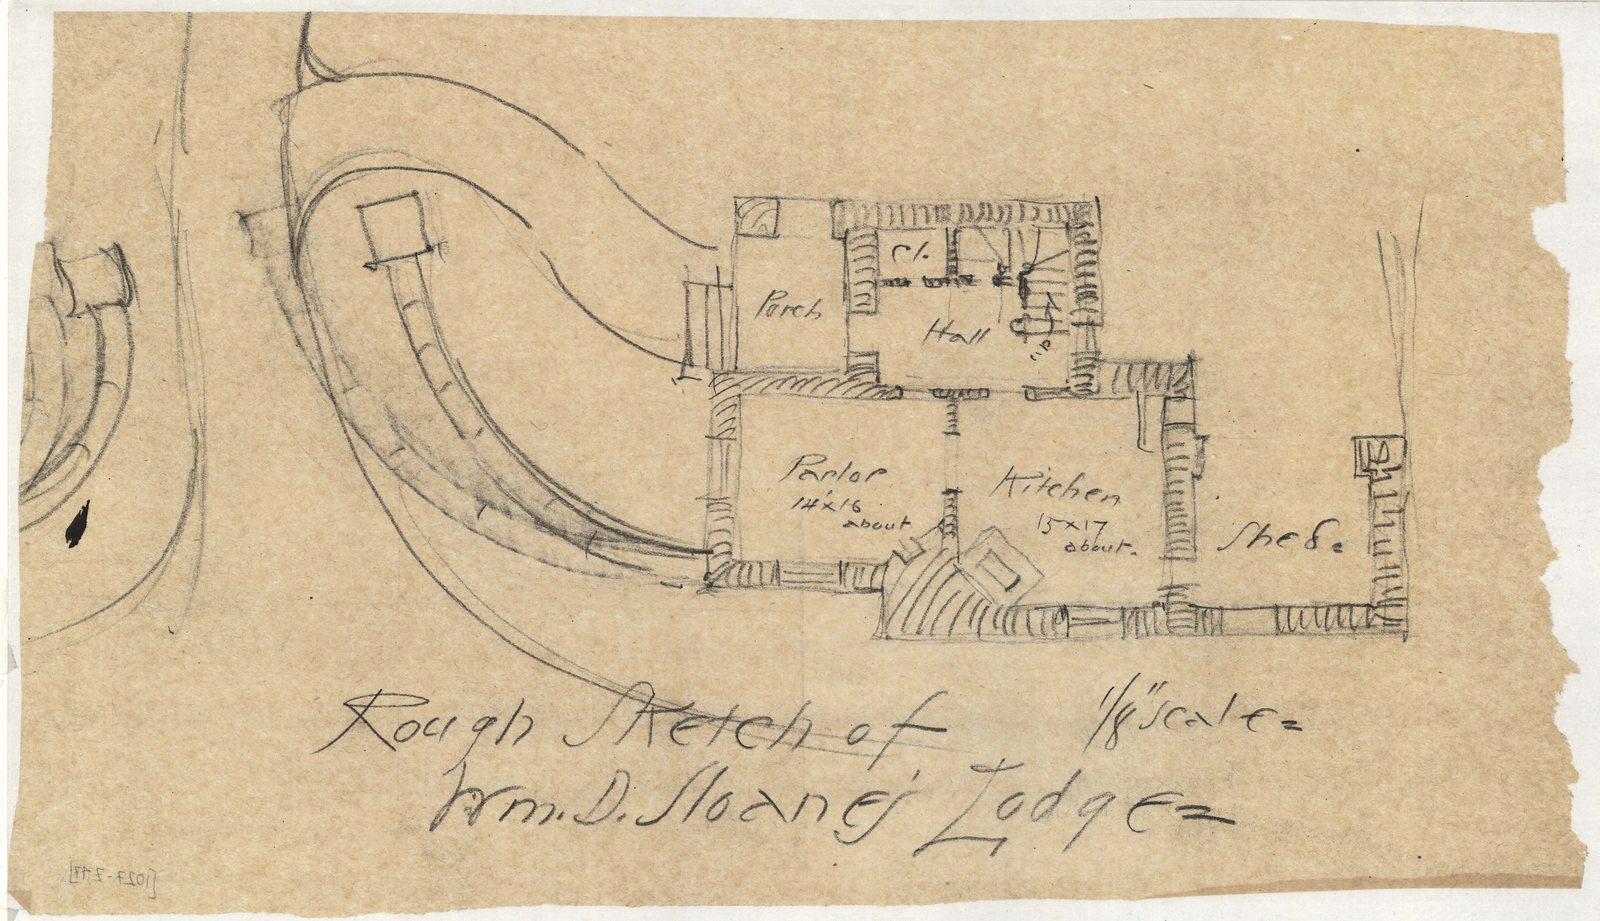 Cl.
Porch
Hall
up
Parlor
14'x16
about
Kitchen
15x17
about.
Shed.
Rough Sketch of
1/8" scale
Wm. D. Sloane's Lodge